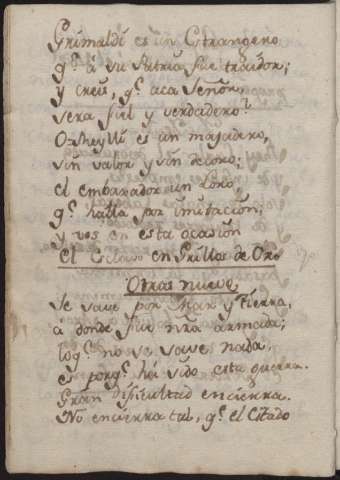 Grimaldi es un Estrangero
q.e á su Patria fue traidor;
y creis, q.e acá Señor,
sera fiel y verdadero?
Orheylli es un majadero,
sin valor y sin decoro;
el embaxador un Loro
q.e habla por imitacion;
y vos en esta ocasion
el Esclavo en Grillos de Oro
Otras nueve
Se save por Mar y Tierra,
a donde fue nra armada;
loq.e no se save nada,
es porq.e há sido esta guerra.
Gran dificultad encierra.
No encierra tal, q.e el Citado